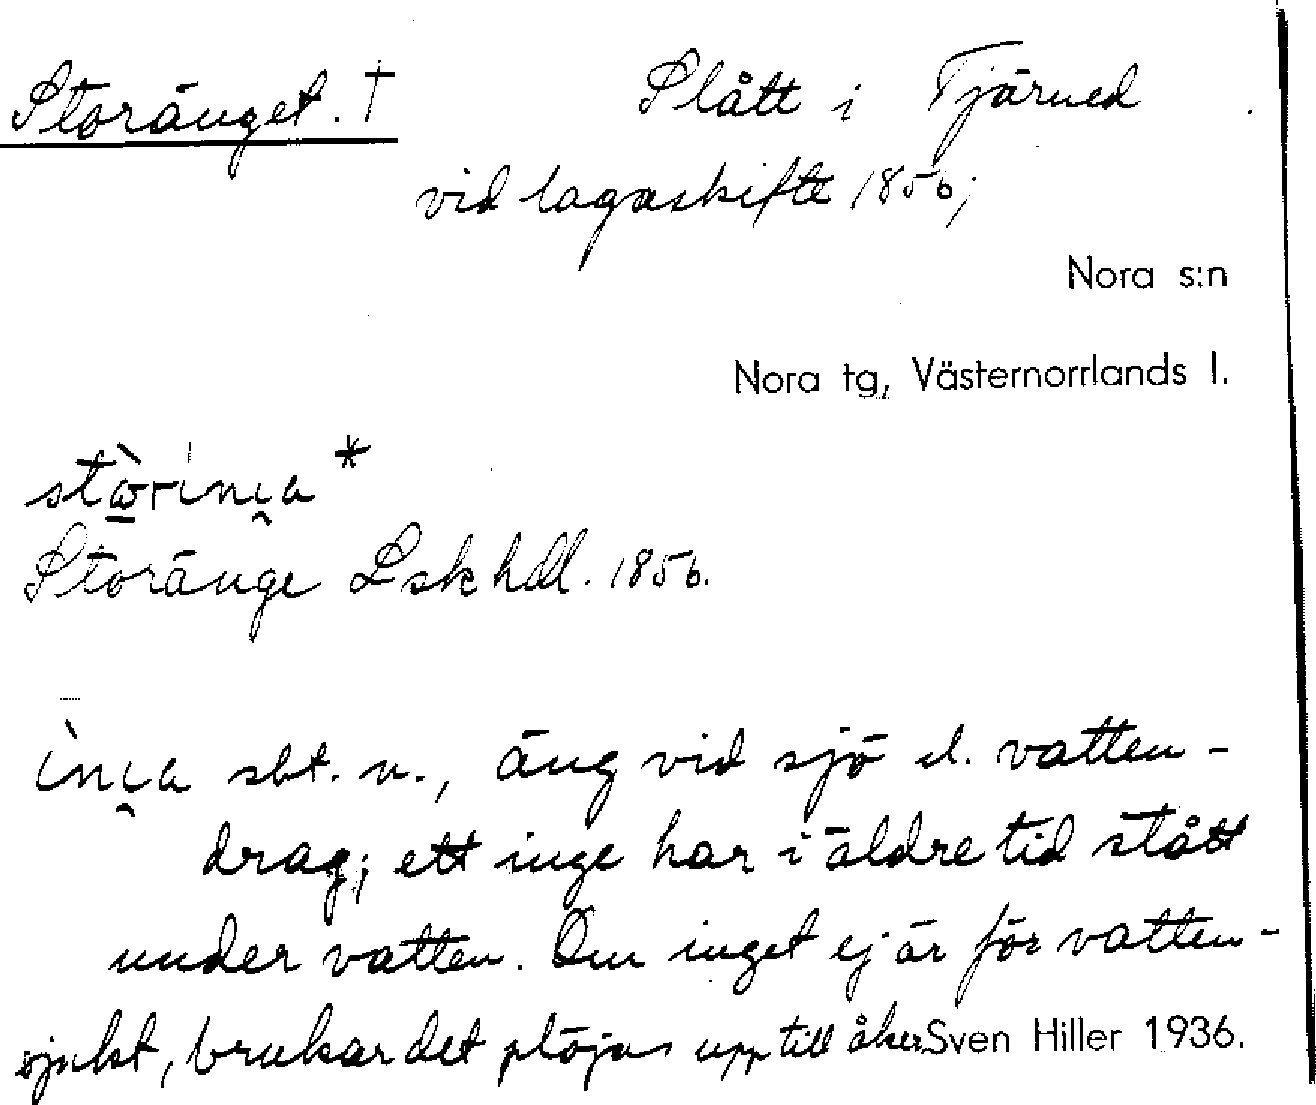 Storänget. † Slått i Tjärned
vid lagaskifte 1856;
Nora s:n
Nora tg, Västernorrlands l.
Storänge Lsk hdl. 1856.
sbt. n., äng vid sjö el. vatten-
drag; ett inge har i äldre tid stått
under vatten. Om inget ej är för vatten-
sjukt, brukar det plöjas upp till åker. Sven Hiller 1936.